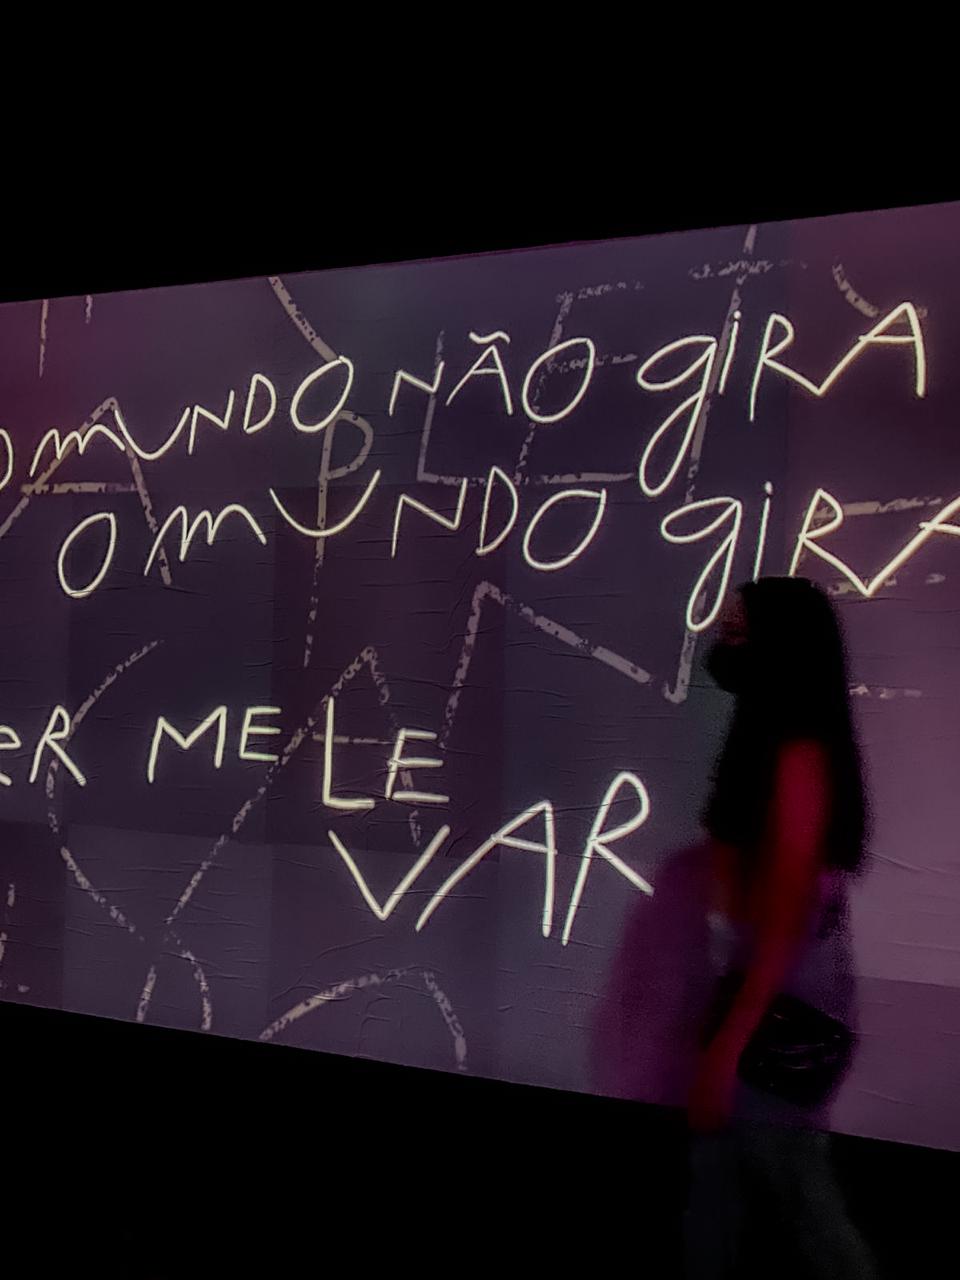 O mUNDO NÃO giRA
O mUNDO giRA
eR ME LE
VAR